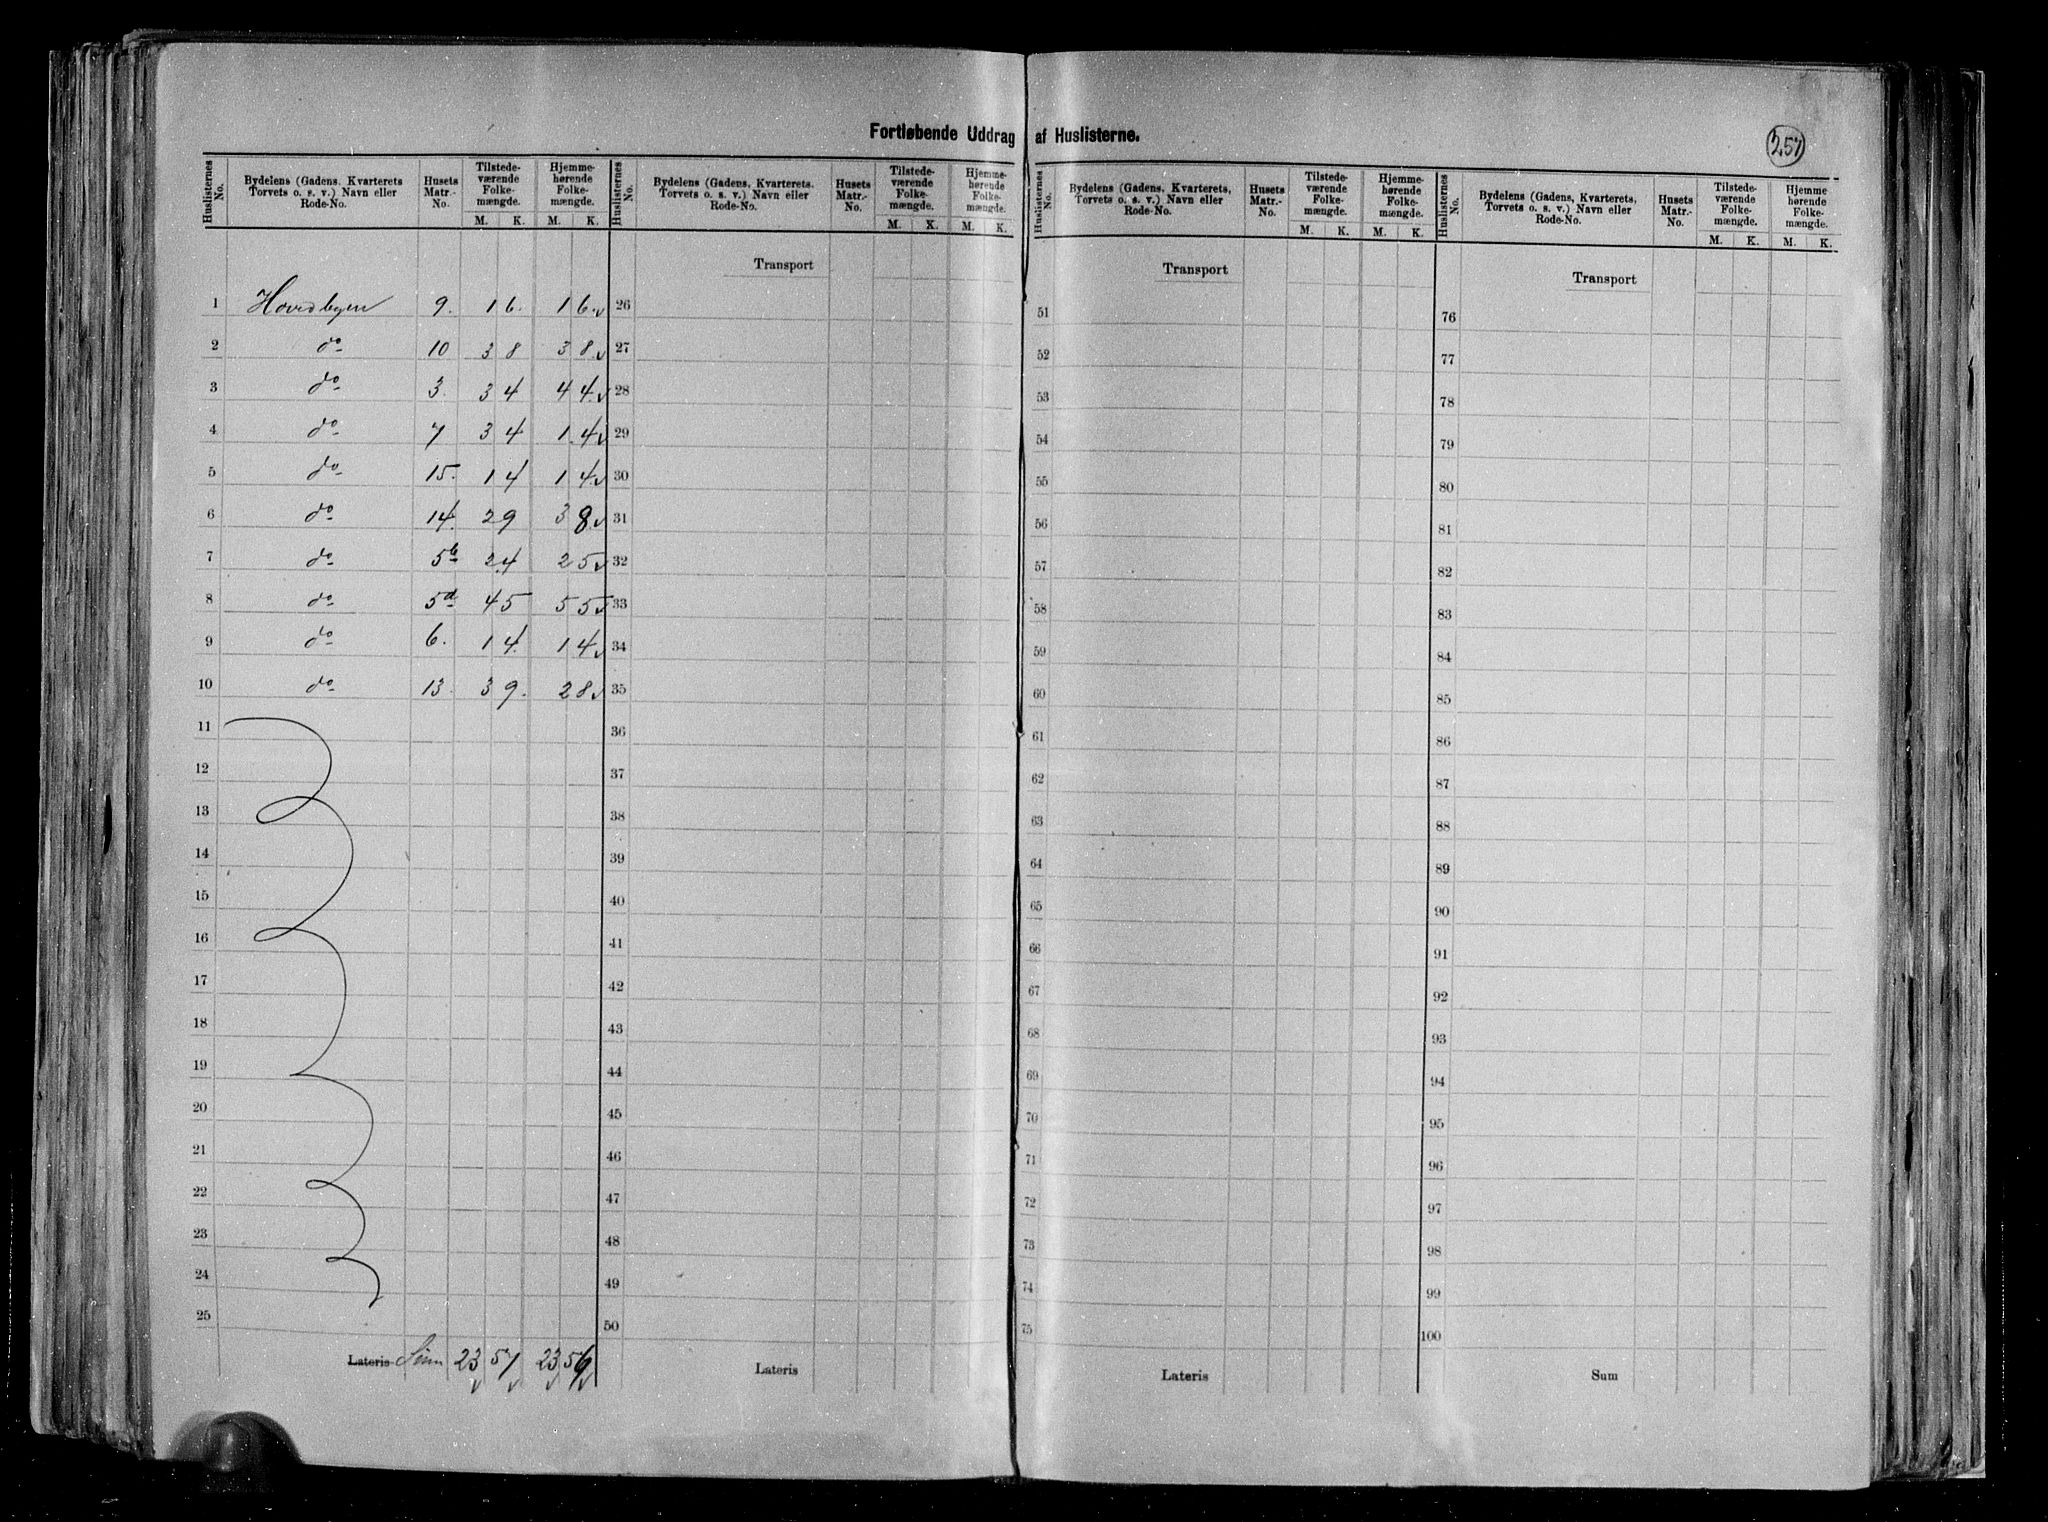 Fortløbende Uddrag af Huslisterne.
257
Huslisternes No. | Bydelens (Gadens, Kvarterets Torvets o. s. v.) Navn eller Rode-No. | Husets Matr.-No. | Tilstedeværende Folkemængde. M. K. | Hjemmehørende Folkemængde. M. K.
1 Hovedbyen 9. 1 6. 1 6.
2 do 10 3 8 3 8.
3 do 3. 3 4 4 4.
4 do 7 3 4 1. 4
5 do 15. 1 4 1 4.
6 do 14. 2 9 3 8.
7 do 5b 2 4 2 5
8 do 5d 4 5 5 5
9 do 6. 1 4. 1 4
10 do 13. 3 9. 2 8
11
12
13
14
15
16
17
18
19
20
21
22
23
24
25
Lateris Sum 23 57 23 56
Huslisternes No. | Bydelens (Gadens, Kvarterets, Torvets o. s. v.) Navn eller Rode-No. | Husets Matr.-No. | Tilstedeværende Folkemængde. M. K. | Hjemmehørende Folkemængde. M. K.
Transport
26
27
28
29
30
31
32
33
34
35
36
37
38
39
40
41
42
43
44
45
46
47
48
49
50
Lateris
Huslisternes No. | Bydelens (Gadens, Kvarterets, Torvets o. s. v.) Navn eller Rode-No. | Husets Matr.-No. | Tilstedeværende Folkemængde. M. K. | Hjemmehørende Folkemængde. M. K.
Transport
51
52
53
54
55
56
57
58
59
60
61
62
63
64
65
66
67
68
69
70
71
72
73
74
75
Lateris
Huslisternes No. | Bydelens (Gadens, Kvarterets, Torvets o. s. v.) Navn eller Rode-No. | Husets Matr.-No. | Tilstedeværende Folkemængde. M. K. | Hjemmehørende Folkemængde. M. K.
Transport
76
77
78
79
80
81
82
83
84
85
86
87
88
89
90
91
92
93
94
95
96
97
98
99
100
Sum